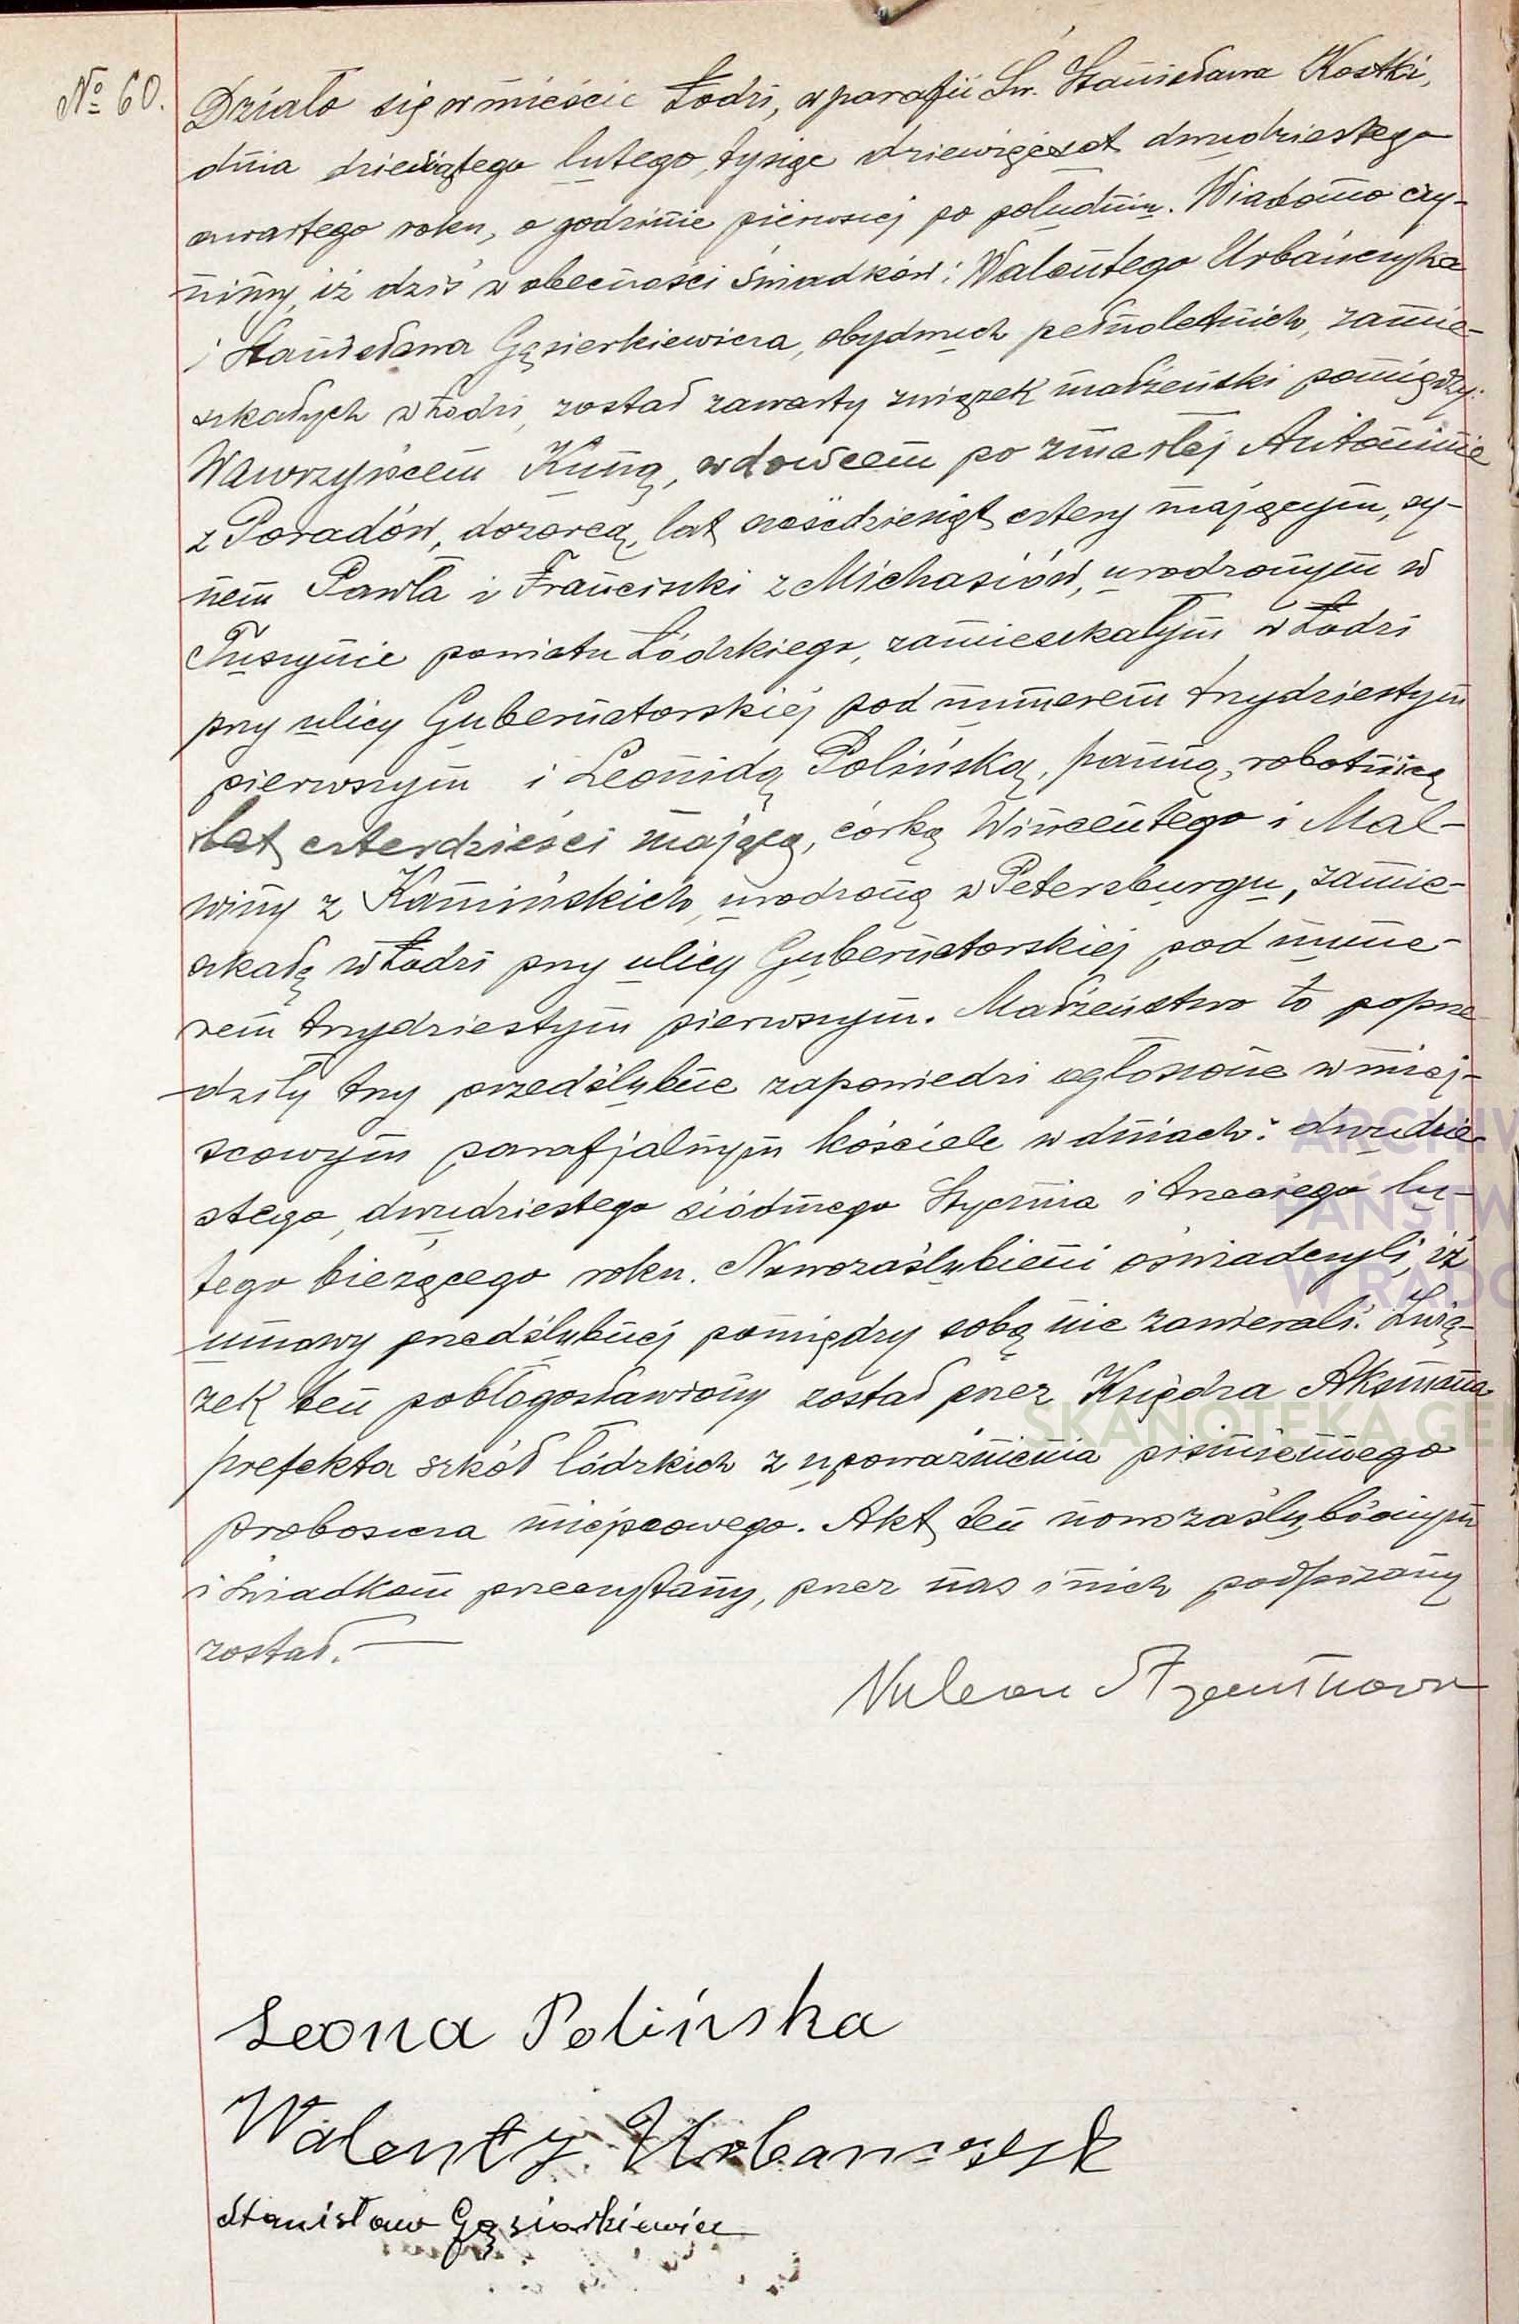 № 60.
Działo się w mieście Łodzi, w parafii Św. Stanisława Kostki,
dnia dziewiątego lutego, tysiąc dziewięćset dwudziestego
czwartego roku, o godzinie pierwszej po południu. Wiadomo czy-
nimy, iż dziś w obecności świadków: Walentego Urbańczyka
i Stanisława Gąsierkiewicza, obydwuch pełnoletnich, zamie-
szkałych w Łodzi, został zawarty związek małżeński pomiędzy:
Wawrzyńcem Kuną, wdowcem po zmarłej Antoninie
z Poradów, dozorcą, lat sześćdziesiąt cztery mającym, sy-
nem Pawła i Franciszki z Michasiów, urodzonym w
Tuszynie powiatu Łódzkiego, zamieszkałym w Łodzi
przy ulicy Gubernatorskiej pod numerem trzydziestym
pierwszym i Leonidą Polińską, panną, robotnicą
lat czterdzieści mającą, córką Wincentego i Mal-
winy z Kamińskich, urodzoną w Petersburgu, zamie-
szkałą w Łodzi przy ulicy Gubernatorskiej pod nume-
rem trzydziestym pierwszym. Małżeństwo to poprze
dziły trzy przedślubne zapowiedzi ogłoszone w miej-
scowym parafjalnym kościele w dniach: dwudzie-
stego, dwudziestego siódmego Stycznia i trzeciego lu-
tego bieżącego roku. Nowozaślubieni oświadczyli, iż
umowy przedślubnej pomiędzy sobą nie zawierali. Zwią-
zek ten pobłogosławiony został przez Księdza Aksmana
prefekta szkół łódzkich z upoważnienia piśmiennego
proboszcza miejscowego. Akt ten nowozaślubionym
i świadkom przeczytany, przez nas i nich podpisany
został.
Leona Polińska
Walenty Urbanczyk
Stanisław Gąsiorkiewicz
ARCHIW
PAŃSTW
W RADO
SKANOTEKA.GE